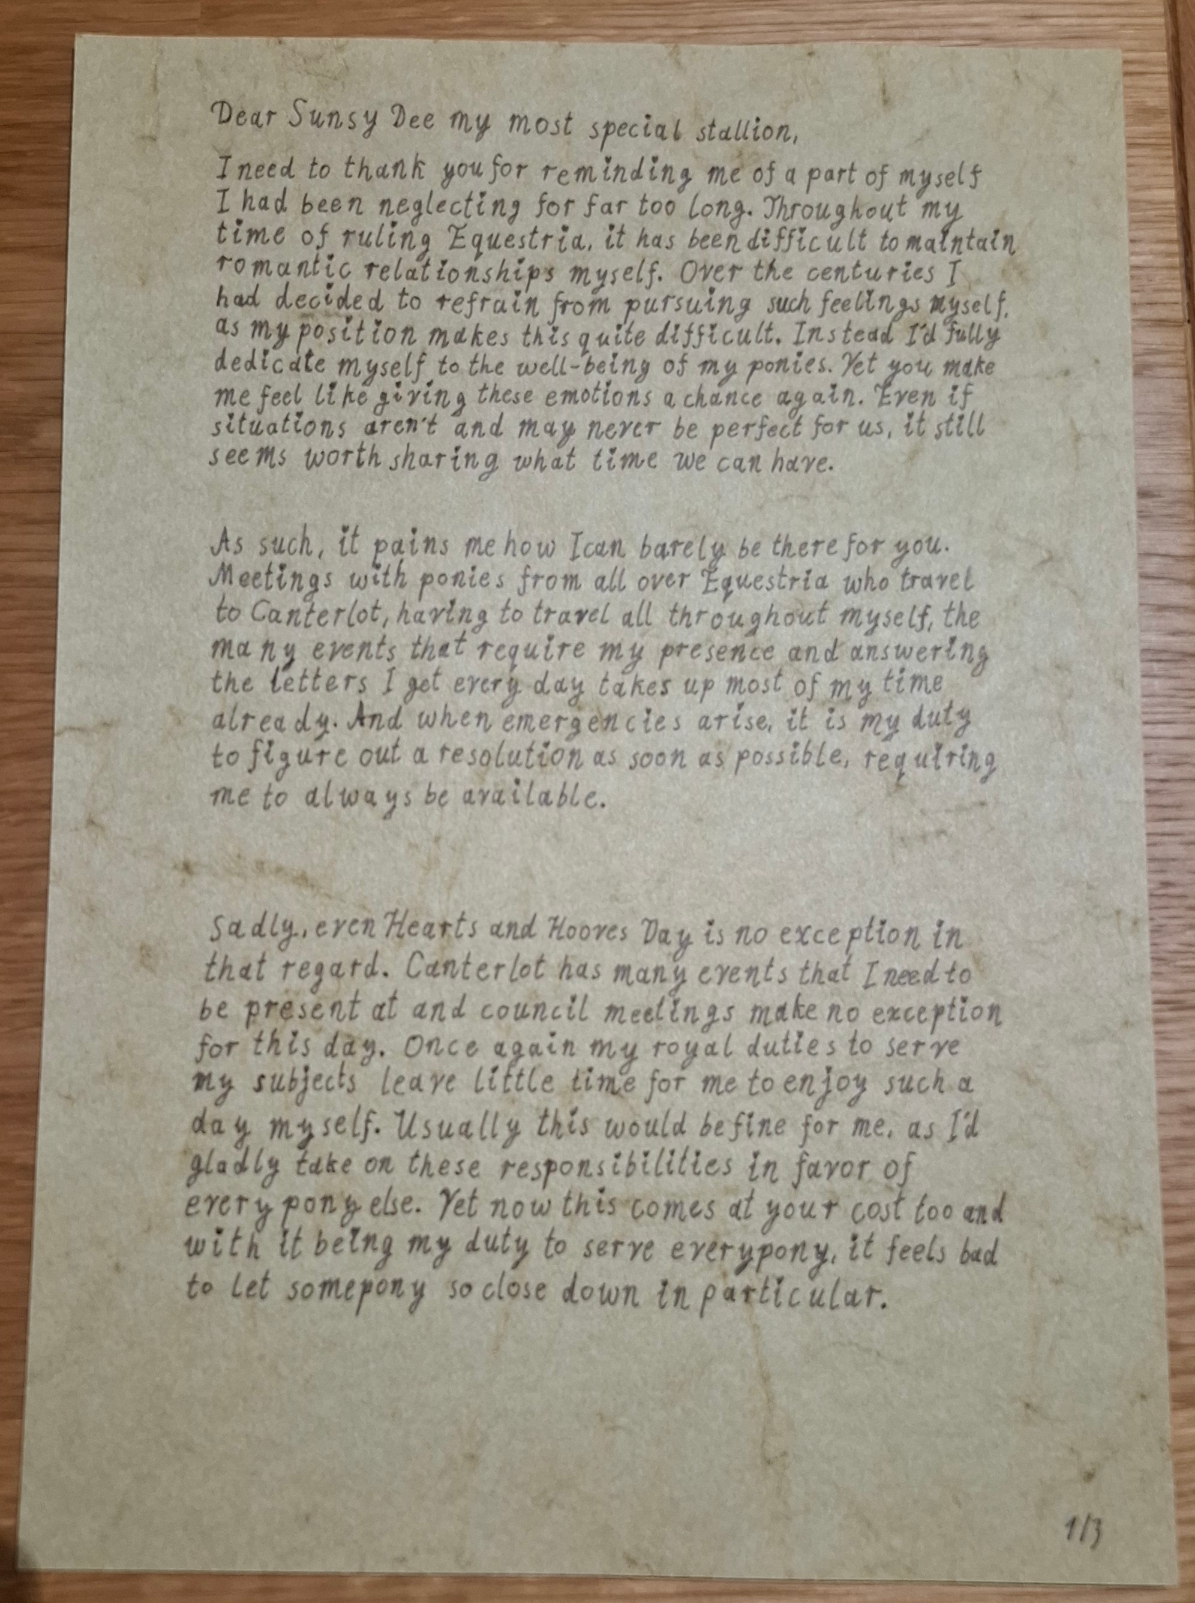 Dear Sunsy Dee my most special stallion,
I need to thank you for reminding me of a part of myself
I had been neglecting for far too long. Throughout my
time of ruling Equestria, it has been difficult to maintain
romantic relationships myself. Over the centuries I
had decided to refrain from pursuing such feelings myself,
as my position makes this quite difficult. Instead I'd fully
dedicate myself to the well-being of my ponies. Yet you make
me feel like giving these emotions a chance again. Even if
situations aren't and may never be perfect for us, it still
seems worth sharing what time we can have.
As such, it pains me how I can barely be there for you.
Meetings with ponies from all over Equestria who travel
to Canterlot, having to travel all throughout myself, the
many events that require my presence and answering
the letters I get every day takes up most of my time
already. And when emergencies arise, it is my duty
to figure out a resolution as soon as possible, requiring
me to always be available.
Sadly, even Hearts and Hooves Day is no exception in
that regard. Canterlot has many events that I need to
be present at and council meetings make no exception
for this day. Once again my royal duties to serve
my subjects leave little time for me to enjoy such a
day myself. Usually this would be fine for me, as I'd
gladly take on these responsibilities in favor of
everypony else. Yet now this comes at your cost too and
with it being my duty to serve everypony, it feels bad
to let somepony so close down in particular.
1/3